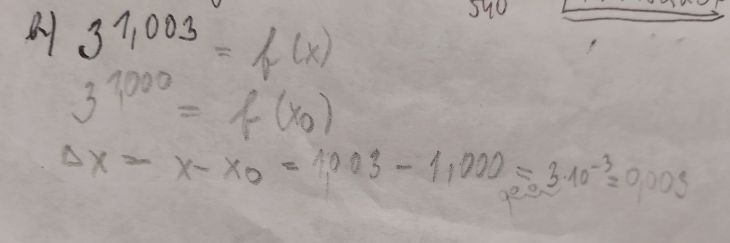 в) 3^1,003 = f(x)
3^1,000 = f(x₀)
Δx = x - x₀ = 1,003 - 1,000 = 3·10^-3 = 0,003